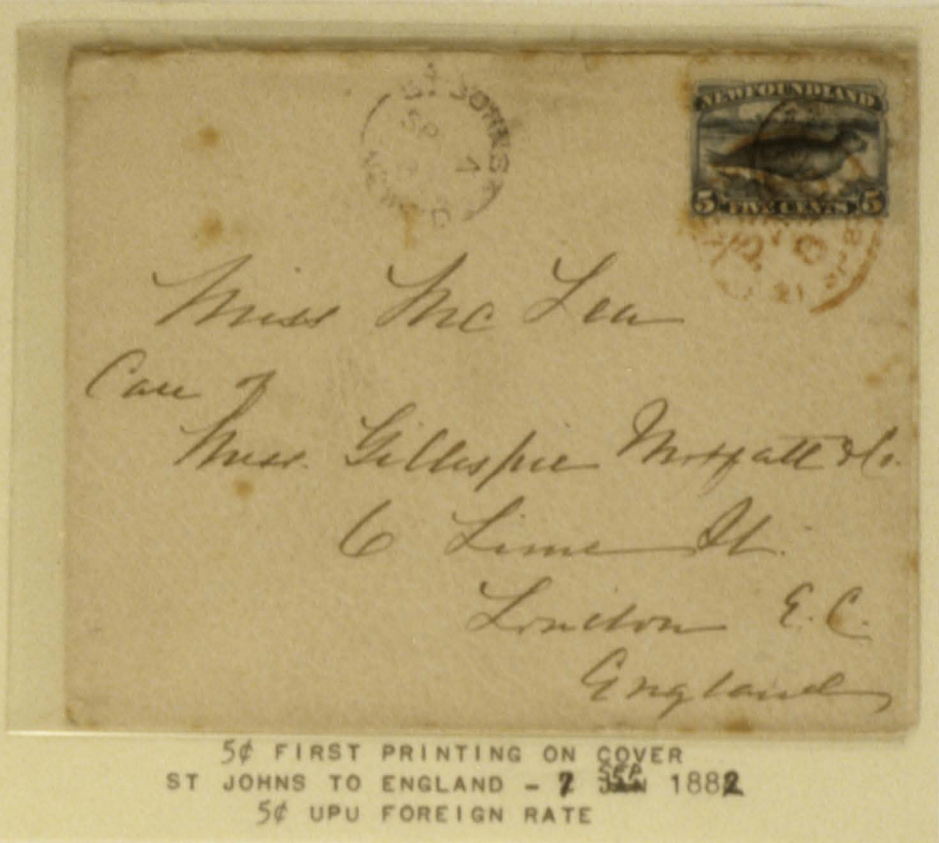 ST JOHNS
SP 7
NEWFOUNDLAND
5 FIVE CENTS 5
Miss McLea
Care of
Mess. Gillespie Moffatt & Co.
6 Lime St.
London E.C.
England
5¢ FIRST PRINTING ON COVER
ST JOHNS TO ENGLAND - 7 SEP 1882
5¢ UPU FOREIGN RATE